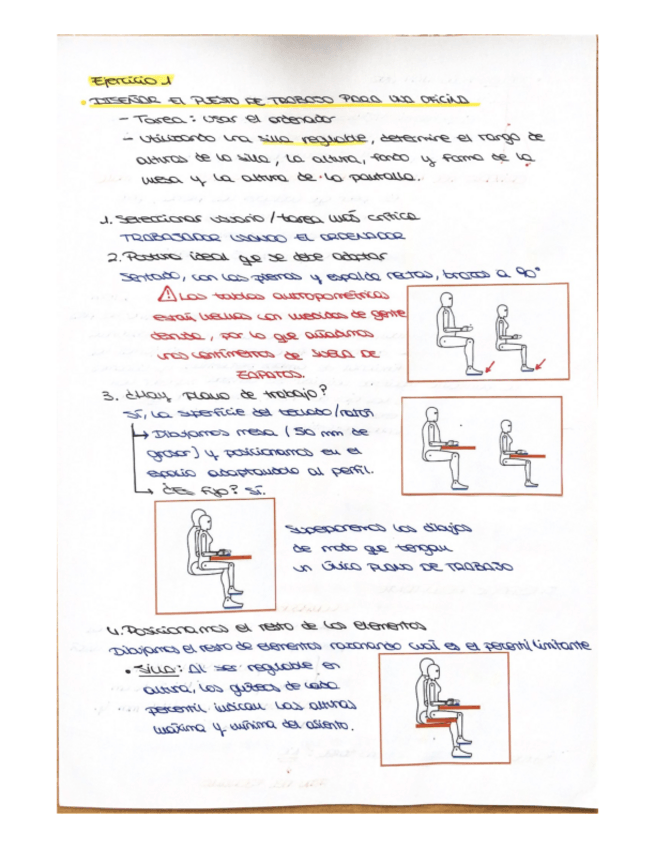 Ejercicio 1
• DISEÑAR EL PUESTO DE TRABAJO PARA UNA OFICINA
- Tarea: usar el ordenador
- Utilizando una silla regulable, determine el rango de
alturas de la silla, la altura, fondo y forma de la
mesa y la altura de la pantalla.
1. Seleccionar usuario / tarea más crítica
TRABAJADOR USANDO EL ORDENADOR
2. Postura ideal que se debe adoptar
Sentado, con las piernas y espalda rectas, brazos a 90°
⚠ Las tablas antropométricas
están hechas con medidas de gente
desnuda, por lo que añadimos
unos centímetros de SUELA DE
ZAPATOS.
3. ¿Hay plano de trabajo?
Sí, la superficie del teclado/ratón
↳ Dibujamos mesa (50 mm de
grosor) y posicionamos en el
espacio adaptándolo al perfil.
↳ ¿Es fijo? Sí.
Superponemos los dibujos
de modo que tengan
un ÚNICO PLANO DE TRABAJO
4. Posicionamos el resto de los elementos
Dibujamos el resto de elementos razonando cuál es el percentil limitante
• SILLA: Al ser regulable en
altura, los glúteos de cada
percentil indican las alturas
máxima y mínima del asiento.